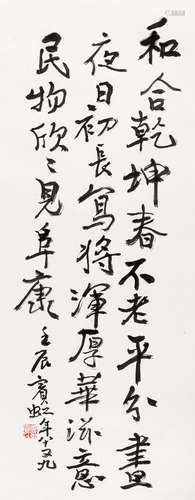 和合乾坤春不老平分晝
夜日初長寫將渾厚華滋意
民物欣〻見阜康
壬辰賓虹年八十又九